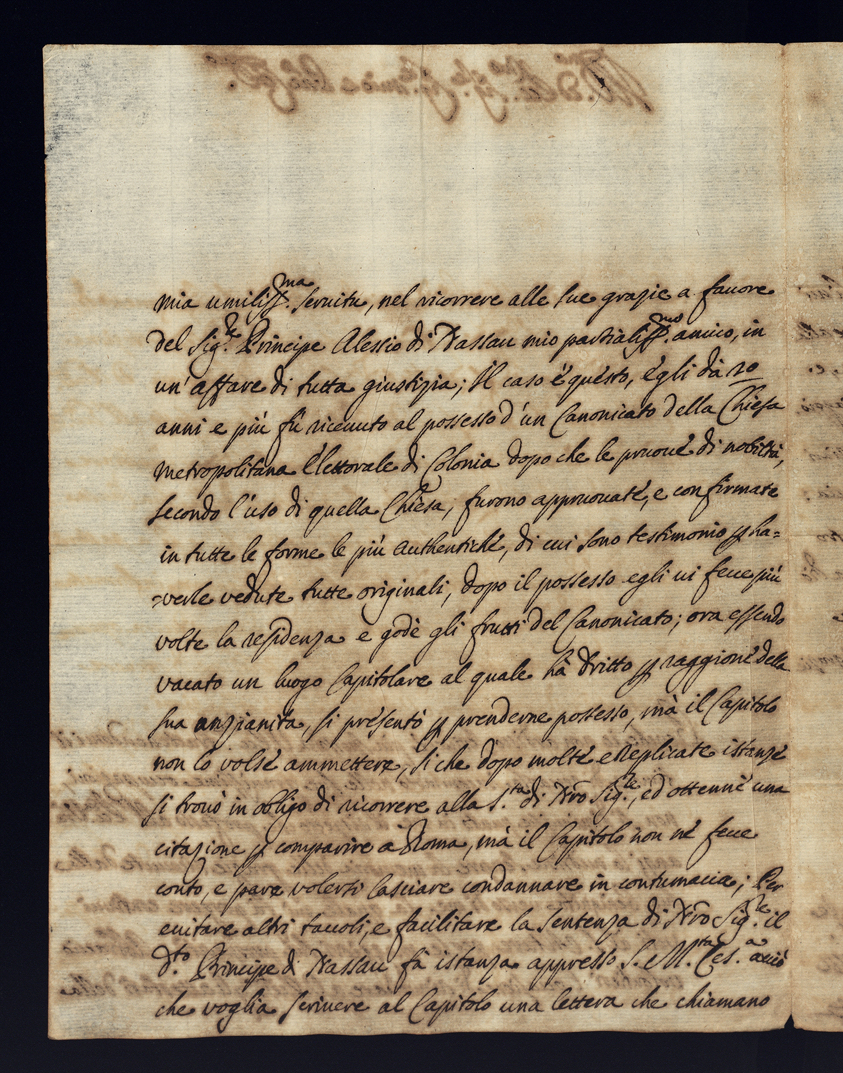 mia umiliss.ma servitu, nel ricorrere alle sue grazie a favore
del Sig.re Principe Alessio di Nassau mio partialiss.mo amico, in
un'affare di tutta giustizia; Il caso é questo, egli dà 20
anni e piú fú ricevuto al possesso d'un Canonicato della Chiesa
Metropolitana Elettorale di Colonia dopo che le pruove di nobiltà,
secondo l'uso di quella Chiesa, furono appruovate, e confirmate
in tutte le forme le piú authentiche, di cui sono testimonio p ha=
=verle vedute tutte originali, dopo il possesso egli vi fece piú
volte la residenza e godè gli frutti del Canonicato; ora essendo
vacato un luogo Capitolare al quale hà dritto p raggione della
sua anzianità, si presentó p prenderne possesso, mà il Capitolo
non lo volse ammettere, si che dopo molte e replicate istanze
si trovò in obligo di ricorrere alla S.tà di Nro Sig.re, ed ottenne una
citazione p comparire à Roma, mà il Capitolo non né fece
conto, e pare volersi lasciare condannare in contumacia; Per
evitare altri tavoli, e facilitare la sentenza di Nro Sig.re il
d.to Principe di Nassau fà istanza appresso S. M.tà Ces.a acciò
che voglia scrivere al Capitolo una lettera che chiamano